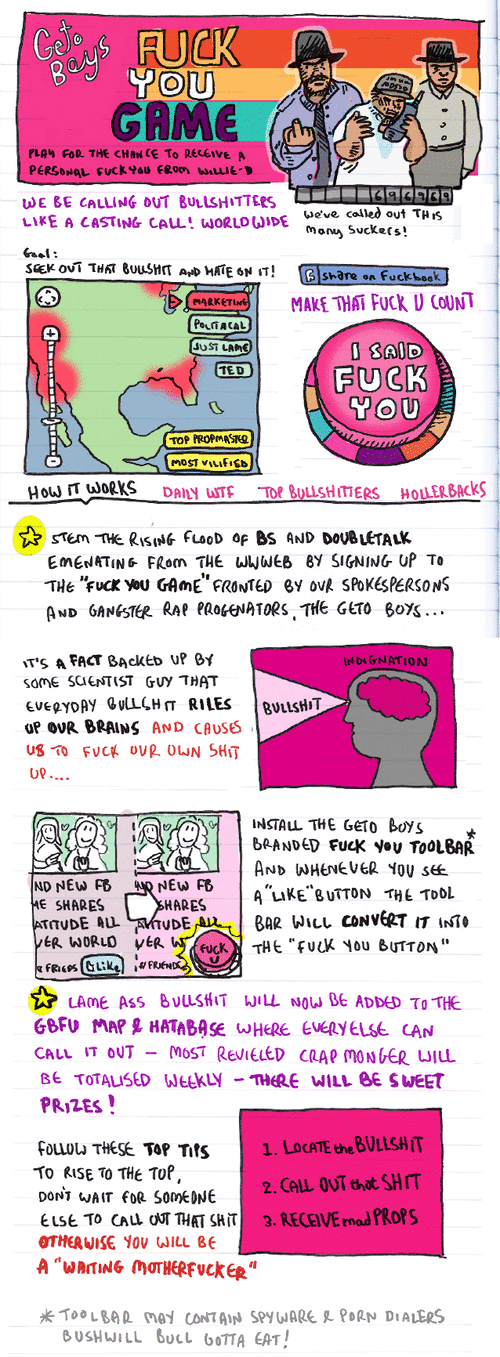 Geto
Boys
FUCK
YOU
GAME
PLAY FOR THE CHANCE TO RECEIVE A
PERSONAL FUCK YOU FROM WILLIE-D
WE BE CALLING OUT BULLSHITTERS
LIKE A CASTING CALL! WORLDWIDE
696969
We've called out THIS
many suckers!
Goal:
SEEK OUT THAT BULLSHIT AND HATE ON IT!
MARKETING
POLITACAL
JUST LAME
TED
TOP PROPMASTER
MOST VILIFIED
f share on Fuckbook
MAKE THAT FUCK U COUNT
I SAID
FUCK
YOU
HOW IT WORKS DAILY WTF TOP BULLSHITTERS HOLLERBACKS
STEM THE RISING FLOOD OF BS AND DOUBLETALK
EMENATING FROM THE WWWEB BY SIGNING UP TO
THE "FUCK YOU GAME" FRONTED BY OUR SPOKESPERSONS
AND GANGSTER RAP PROGENATORS, THE GETO BOYS...
IT'S A FACT BACKED UP BY
SOME SCIENTIST GUY THAT
EVERYDAY BULLSHIT RILES
UP OUR BRAINS AND CAUSES
US TO FUCK OUR OWN SHIT
UP....
INDIGNATION
BULLSHIT
ND NEW FB
ME SHARES
ATITUDE ALL
VER WORLD
& FRIEDS Like
ND NEW FB
SHARES
ATITUDE ALL
VER W
FRIENDS
FUCK
U
INSTALL THE GETO BOYS
BRANDED FUCK YOU TOOLBAR*
AND WHENEVER YOU SEE
A "LIKE" BUTTON THE TOOL
BAR WILL CONVERT IT INTO
THE "FUCK YOU BUTTON"
LAME ASS BULLSHIT WILL NOW BE ADDED TO THE
GBFU MAP & HATABASE WHERE EVERYELSE CAN
CALL IT OUT – MOST REVIELED CRAP MONGER WILL
BE TOTALISED WEEKLY – THERE WILL BE SWEET
PRIZES!
FOLLOW THESE TOP TIPS
TO RISE TO THE TOP,
DON'T WAIT FOR SOMEONE
ELSE TO CALL OUT THAT SHIT
OTHERWISE YOU WILL BE
A "WAITING MOTHERFUCKER"
1. LOCATE the BULLSHIT
2. CALL OUT that SHIT
3. RECEIVE mad PROPS
* TOOLBAR MAY CONTAIN SPYWARE & PORN DIALERS
BUSHWILL BULL GOTTA EAT!